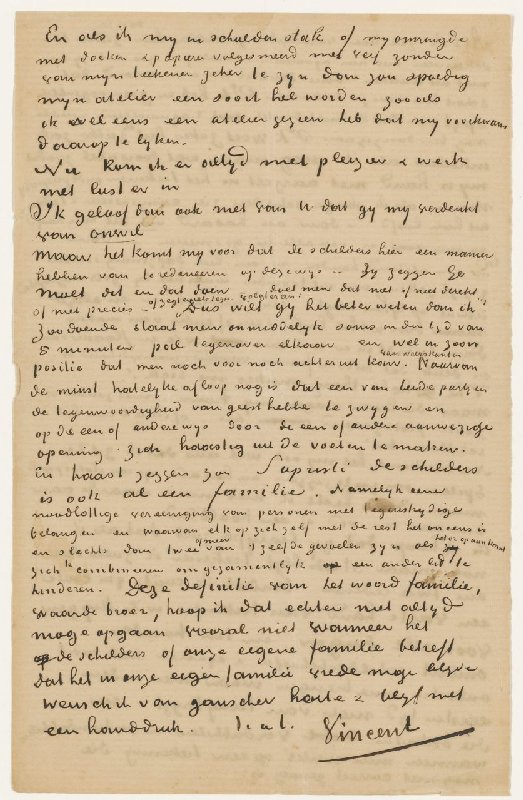 En als ik mij in schulden stak of mij omringde
met doeken & papieren volgesmeerd met verf zonder
van mijn teekenen zeker te zijn dan zou spoedig
mijn atelier een soort hel worden zoo als
ik wel eens een atelier gezien heb dat mij voorkwam
daarop te lijken.
Nu kom ik er altijd met pleizier & werk
met lust er in
Ik geloof dan ook niet van U dat gij mij verdenkt
van onwil
Maar het komt mij voor dat de schilders hier een manier
hebben van te redeneeren op deze wijs – Zij zeggen Ge
moet dit en dat doen doet men dat niet of niet direkt
of niet precies – of zegt men iets ertegen volgt er an:
"Dus wilt gij het beter weten dan ik"
Zoodoende staat men onmiddelijk soms in den tijd van
5 minuten pal tegenover elkaar en wel in zoo'n
positie dat men noch voor noch achteruit kan. Waarvan
van weerskanten
de minst hatelijke afloop nog is dat een van beide partijen
de tegenwoordigheid van geest hebbe te zwijgen en
op de een of andere wijs door de een of andere aanwezige
opening zich haastig uit de voeten te maken.
En haast zeggen zou Sapristi de schilders
is ook al een familie. Namelijk eene
noodlottige vereeniging van personen met tegenstrijdige
belangen en waarvan elk op zich zelf met de rest het oneens is
en slechts dan twee of meer van 't zelfde gevoelen zijn als het er op aankomt
zich te combineeren om gezamentlijk een ander lid te
hinderen. Deze definitie van het woord familie,
waarde broer, hoop ik dat echter niet altijd
moge opgaan vooral niet wanneer het
de schilders of onze eigene familie betreft
Dat het in onze eigen familie vrede moge blijve
wensch ik van ganscher harte & blijf met
een handdruk. t. à t. Vincent